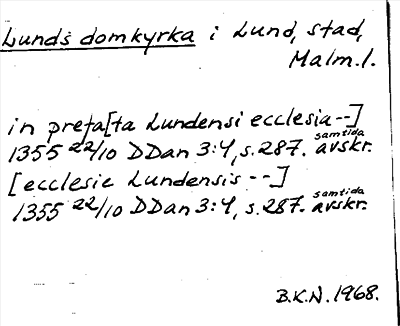 Lunds domkyrka i Lund, stad,
Malm.l.
in prefa[ta Lundensi ecclesia--]
samtida
1355 22/10 DDan 3:4, s.287. avskr.
[ecclesie Lundensis --]
samtida
1355 22/10 DDan 3:4, s.287. avskr.
B.K.N. 1968.